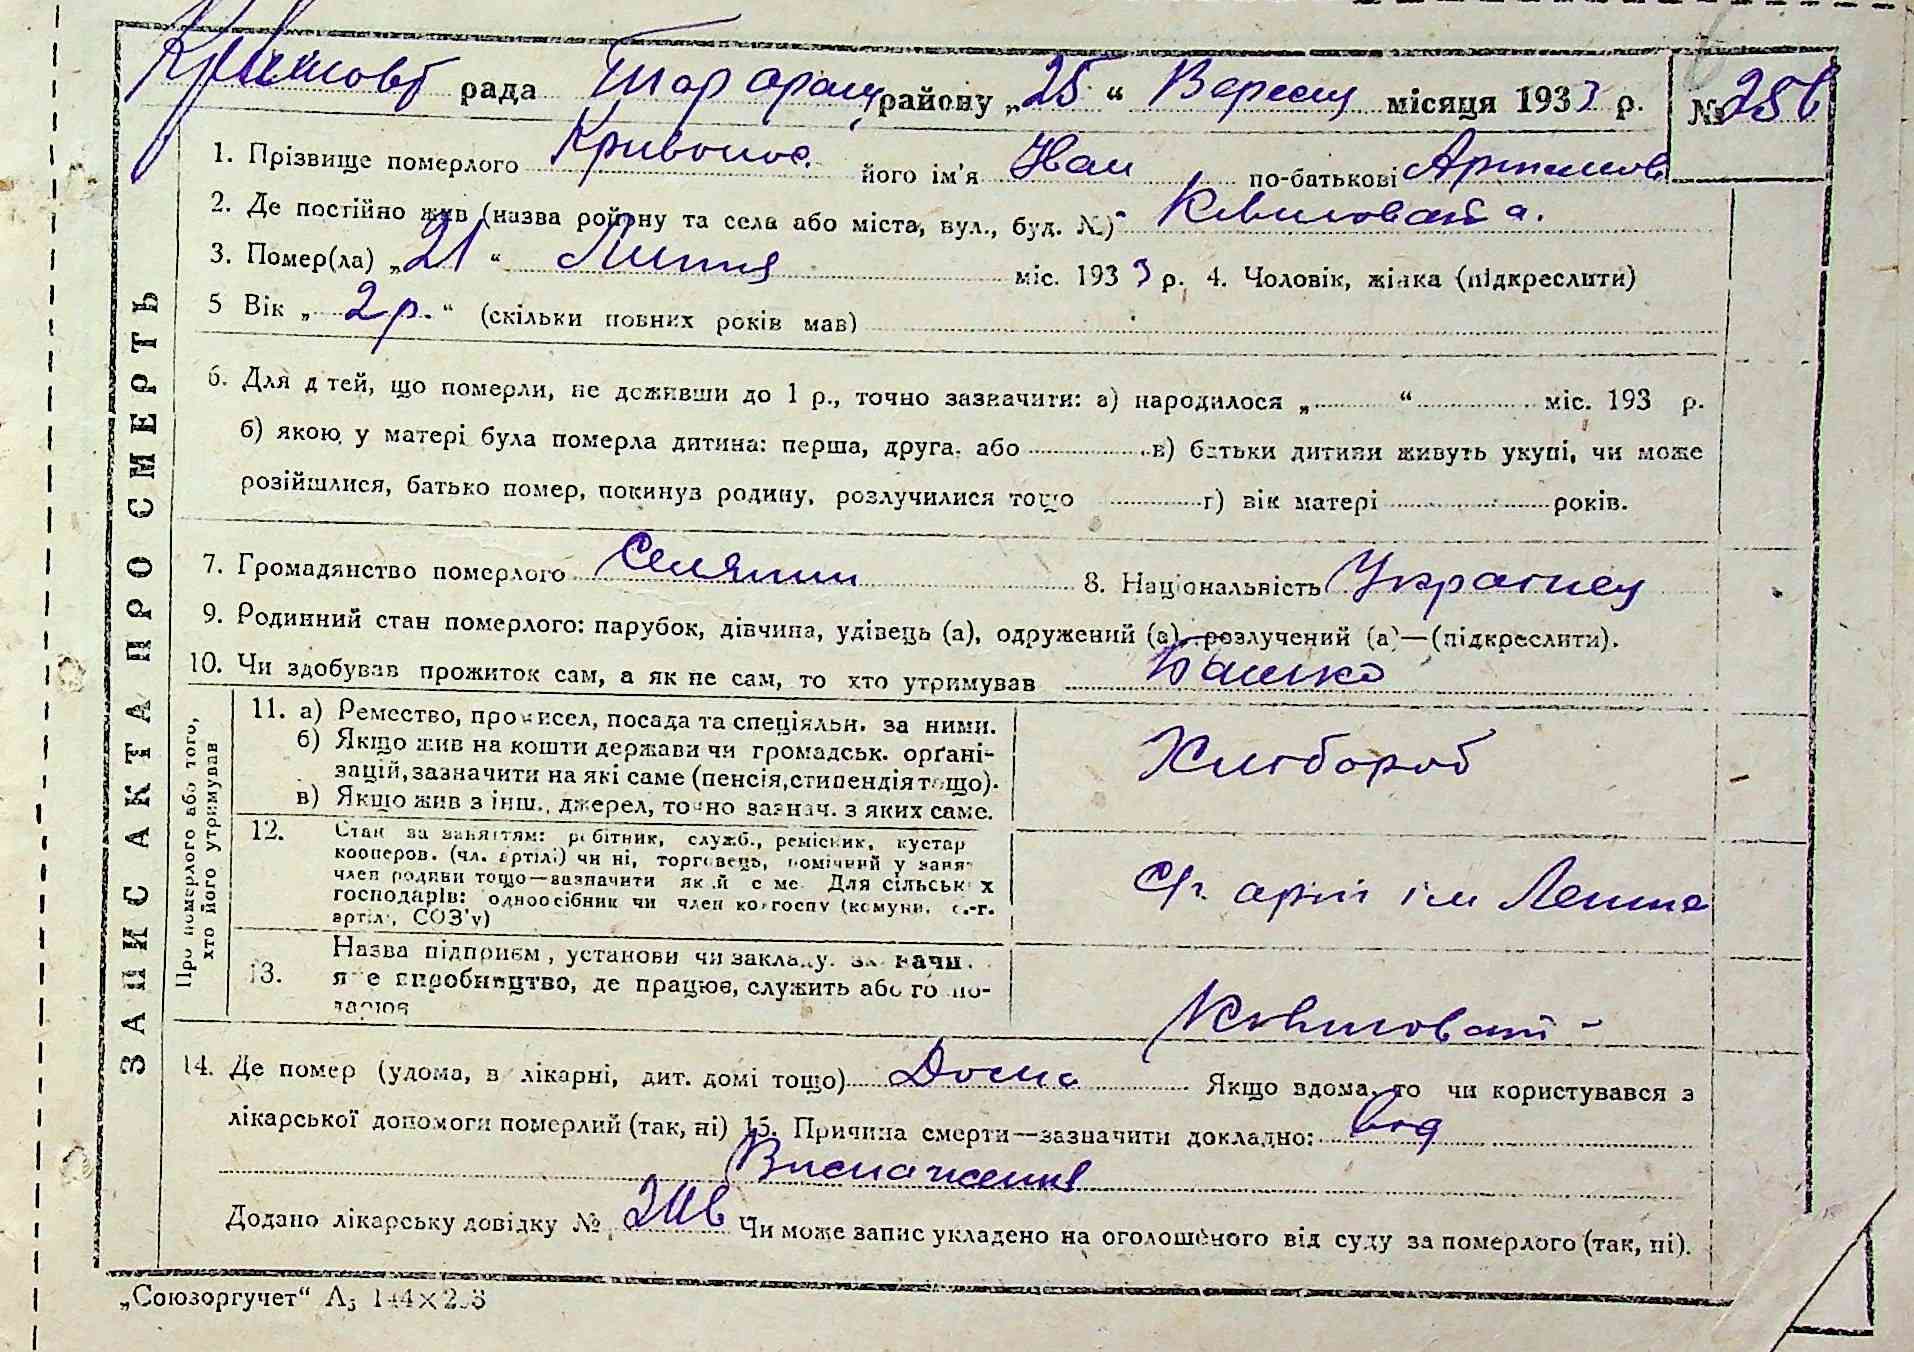 рада Таращ. району „25“ Вересня місяця 1933 р. № 256
1. Прізвище померлого Кривонос. його ім'я Іван по-батькові Артемов
2. Де постійно жив (назва ройону та села або міста, вул., буд. №) Квитовата.
3. Помер(ла) „21“ Липня міс. 1933 р. 4. Чоловік, жінка (підкреслити)
5 Вік „2 р.“ (скільки повних років мав)
6. Для дітей, що померли, не доживши до 1 р., точно зазначити: а) народилося „ “ міс. 193 р.
б) якою у матері була померла дитина: перша, друга. або в) батьки дитини живуть укупі, чи може
розійшлися, батько помер, покинув родину, розлучилися тощо г) вік матері років.
7. Громадянство померлого Селянин 8. Національність Украінец
9. Родинний стан померлого: парубок, дівчина, удівець (а), одружений (а), розлучений (а)—(підкреслити).
10. Чи здобував прожиток сам, а як не сам, то хто утримував Батько
Про померлого або того, хто його утримував
11. а) Ремество, промисел, посада та спеціяльн. за ними.
б) Якщо жив на кошти держави чи громадськ. орґані-
зацій, зазначити на які саме (пенсія, стипендія тощо).
в) Якщо жив з інш., джерел, точно зазнач. з яких саме.
Хлібороб
12. Стан за заняттям: робітник, служб., ремісник, кустар
кооперов. (чл. артілі) чи ні, торговець, помічний у занят
член родини тощо—зазначити який саме Для сільських
господарів: одноосібник чи член колгоспу (комуни, с.-г.
артілі, СОЗ'у)
С/г. артіл ім Леніна
13. Назва підприєм, установи чи закладу. зазначи.
яке виробництво, де працює, служить або госпо-
дарює
Квитоват-
14. Де помер (удома, в лікарні, дит. домі тощо) Дома Якщо вдома, то чи користувався з
лікарської допомоги померлий (так, ні) 15. Причина смерти—зазначити докладно: від
Виснаження
Додано лікарську довідку № Чи може запис укладено на оголошеного від суду за померлого (так, ні).
„Союзоргучет“ А₅
ЗАПИС АКТА ПРО СМЕРТЬ